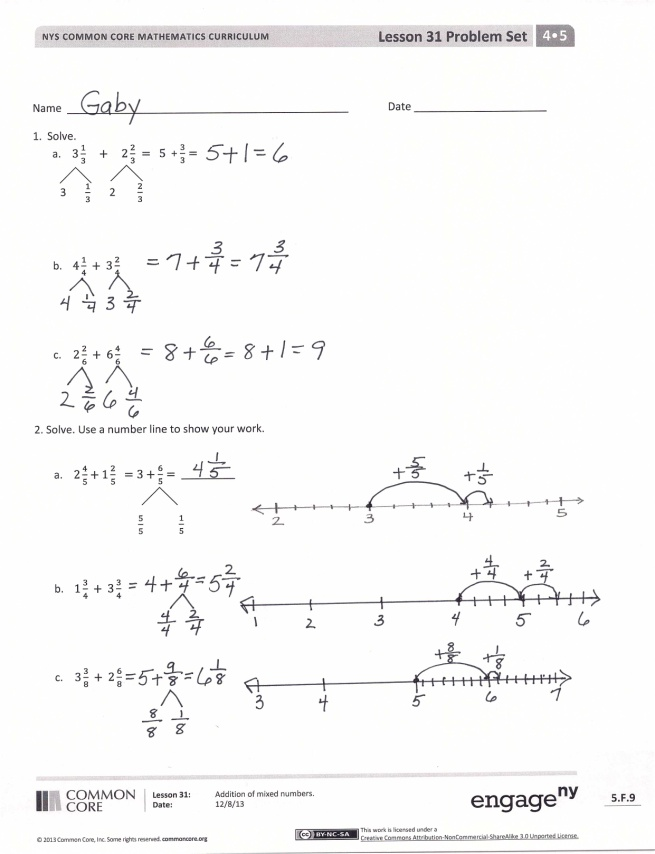 NYS COMMON CORE MATHEMATICS CURRICULUM Lesson 31 Problem Set 4•5
Name Gaby Date
1. Solve.
a. 3 1/3 + 2 2/3 = 5 + 3/3 = 5 + 1 = 6
3 1/3 2 2/3
b. 4 1/4 + 3 2/4 = 7 + 3/4 = 7 3/4
4 1/4 3 2/4
c. 2 2/6 + 6 4/6 = 8 + 6/6 = 8 + 1 = 9
2 2/6 6 4/6
2. Solve. Use a number line to show your work.
a. 2 4/5 + 1 2/5 = 3 + 6/5 = 4 1/5
5/5 1/5
+5/5 +1/5
2 3 4 5
b. 1 3/4 + 3 3/4 = 4 + 6/4 = 5 2/4
4/4 2/4
+4/4 +2/4
1 2 3 4 5 6
c. 3 3/8 + 2 6/8 = 5 + 9/8 = 6 1/8
8/8 1/8
+8/8 +1/8
3 4 5 6 7
COMMON CORE
Lesson 31: Addition of mixed numbers.
Date: 12/8/13
engage ny
5.F.9
© 2013 Common Core, Inc. Some rights reserved. commoncore.org
(cc) BY-NC-SA
This work is licensed under a
Creative Commons Attribution-NonCommercial-ShareAlike 3.0 Unported License.